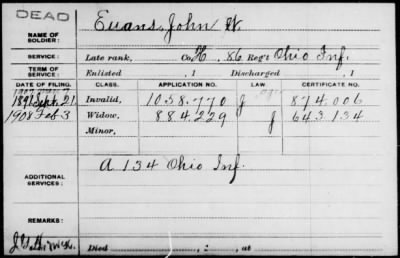 DEAD
NAME OF SOLDIER: Evans, John W.
SERVICE: Late rank, Co. H, 86 Reg't Ohio Inf.
TERM OF SERVICE: Enlisted , 1 Discharged , 1
DATE OF FILING. CLASS. APPLICATION NO. LAW. CERTIFICATE NO.
1891 Sept. 21 Invalid, 1058.770 J 874.006
1908 Feb 3 Widow, 884.229 J 643.134
Minor,
ADDITIONAL SERVICES: A 134 Ohio Inf.
REMARKS:
Died , : , at